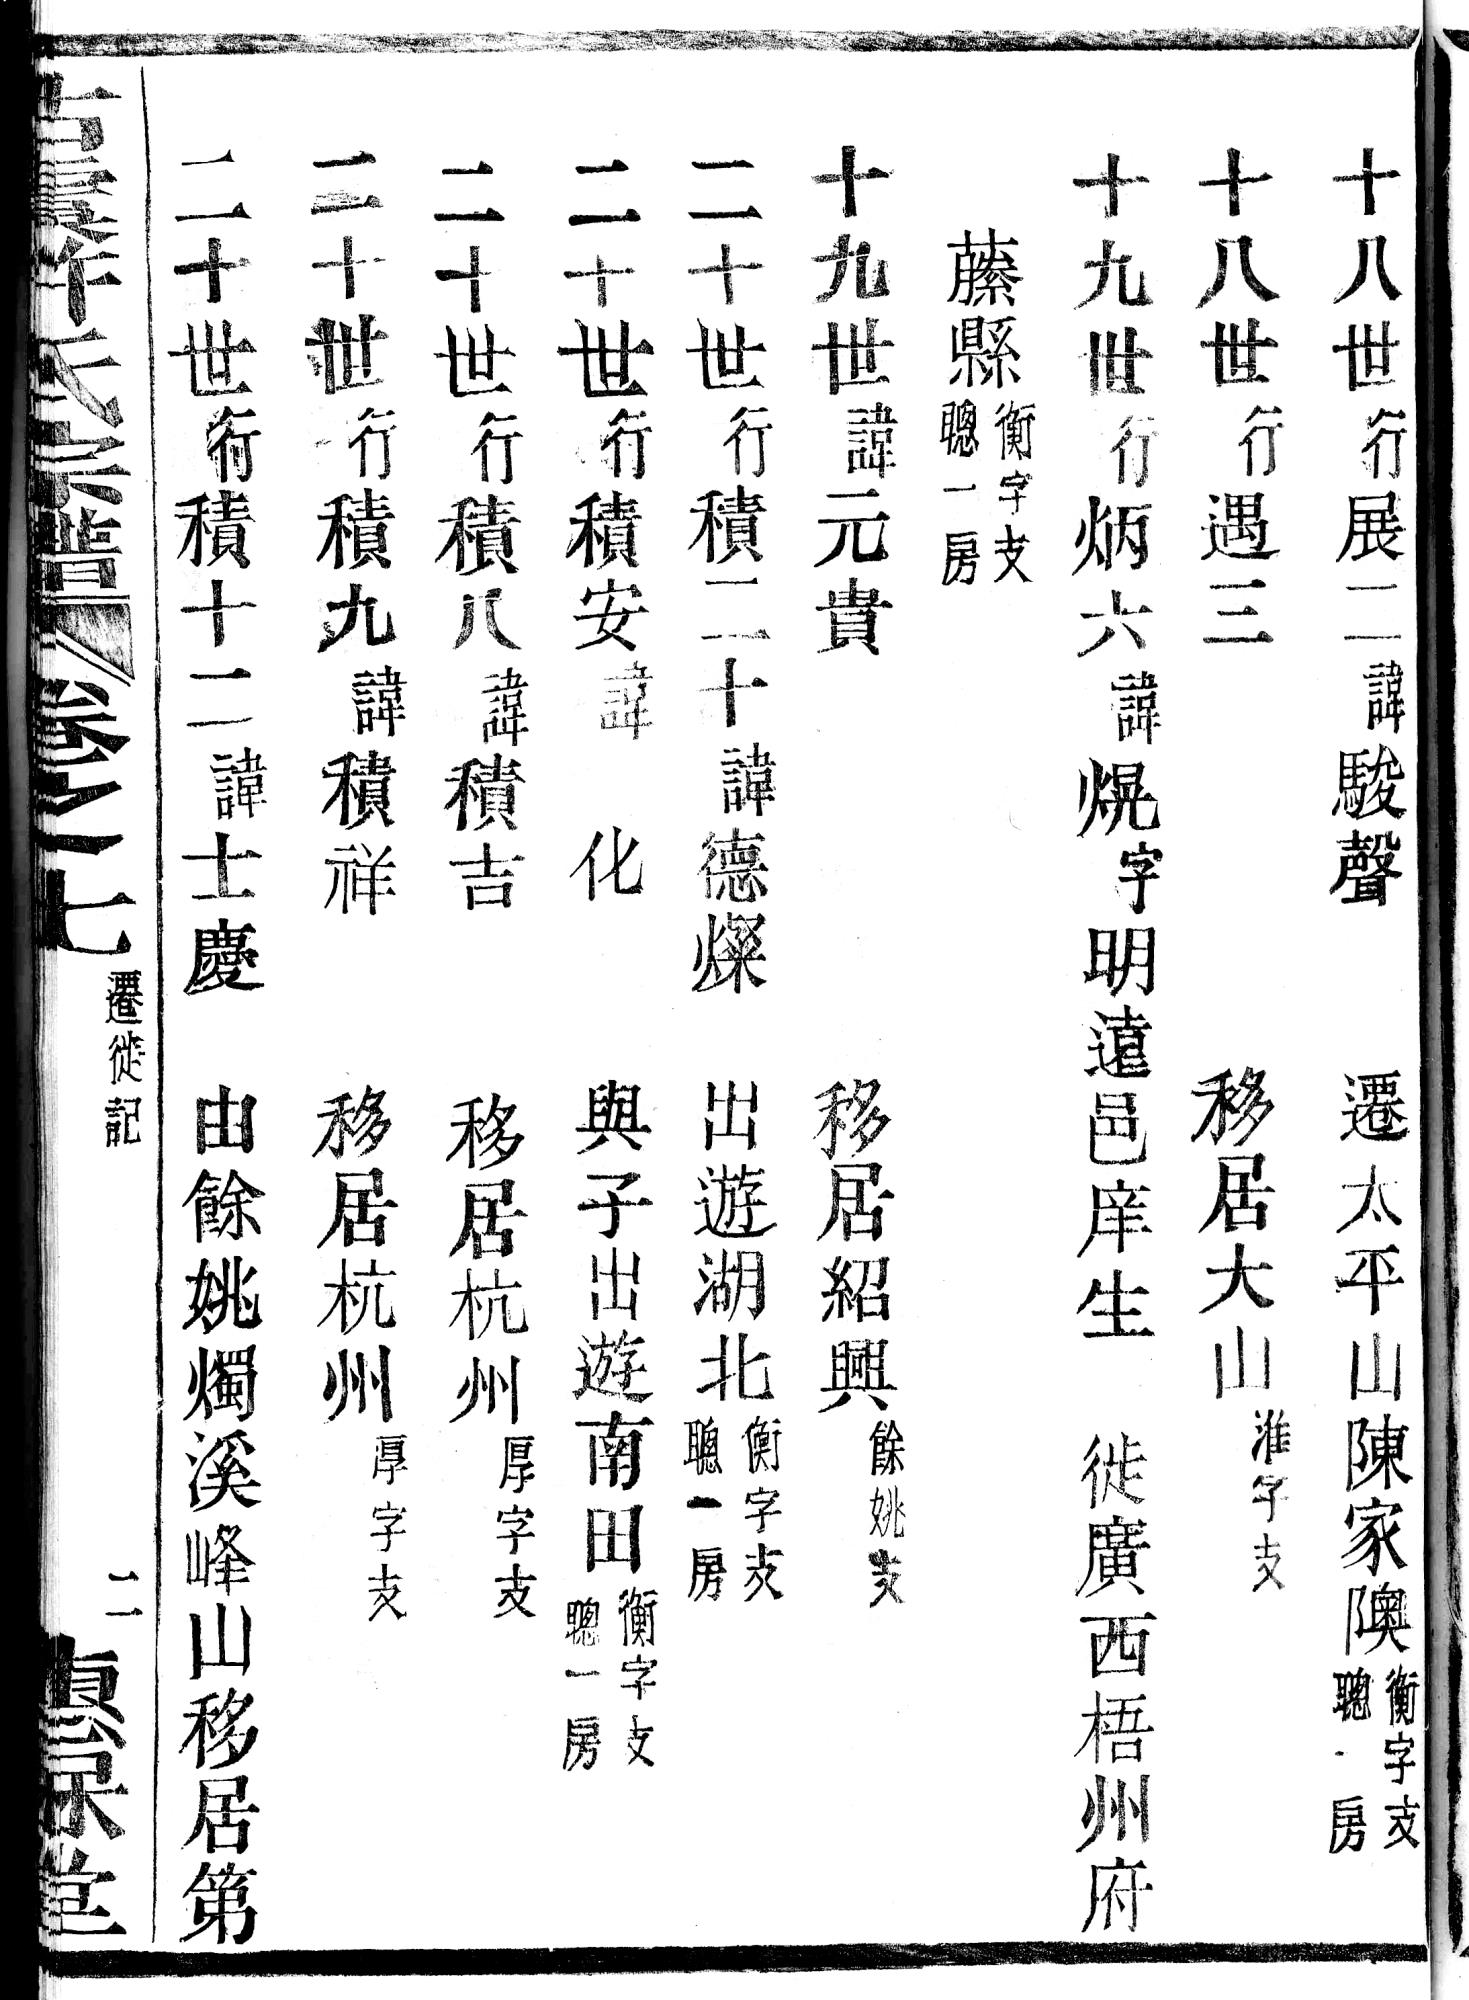 十八世行展二諱駿聲 遷太平山陳家隩衡字支聰一房
十八世行遇三 移居大山淮字支
十九世行炳六諱熀字明遠邑庠生 徙廣西梧州府
藤縣衡字支聰一房
十九世諱元貴 移居紹興餘姚支
二十世行積二十諱德燦 出遊湖北衡字支聰一房
二十世行積安諱 化 與子出遊南田衡字支聰一房
二十世行積八諱積吉 移居杭州厚字支
二十世行積九諱積祥 移居杭州厚字支
二十世行積十二諱士慶 由餘姚燭溪峰山移居第
氏宗譜 卷之七 遷徙記 二 堂